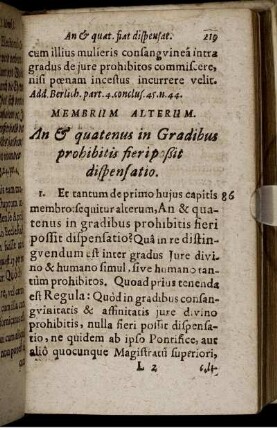 An & quat. fiat dispensat. 219
cum illius mulieris consanguineâ intra
gradus de jure prohibitos commiscere,
nisi pœnam incestus incurrere velit.
Add. Berlich. part. 4. conclus. 45. n. 44.
MEMBRUM ALTERUM.
An & quatenus in Gradibus
prohibitis fieri possit
dispensatio.
1. Et tantum de primo hujus capitis 86
membro: sequitur alterum, An & qua-
tenus in gradibus prohibitis fieri
possit dispensatio? Quâ in re distin-
gvendum est inter gradus Jure divi-
no & humano simul, sive humano tan-
tùm prohibitos. Quoad prius tenenda
est Regula: Quòd in gradibus consan-
gvinitatis & affinitatis jure divino
prohibitis, nulla fieri possit dispensa-
tio, ne quidem ab ipso Pontifice, aut
aliô quocunque Magistratu superiori,
L 2